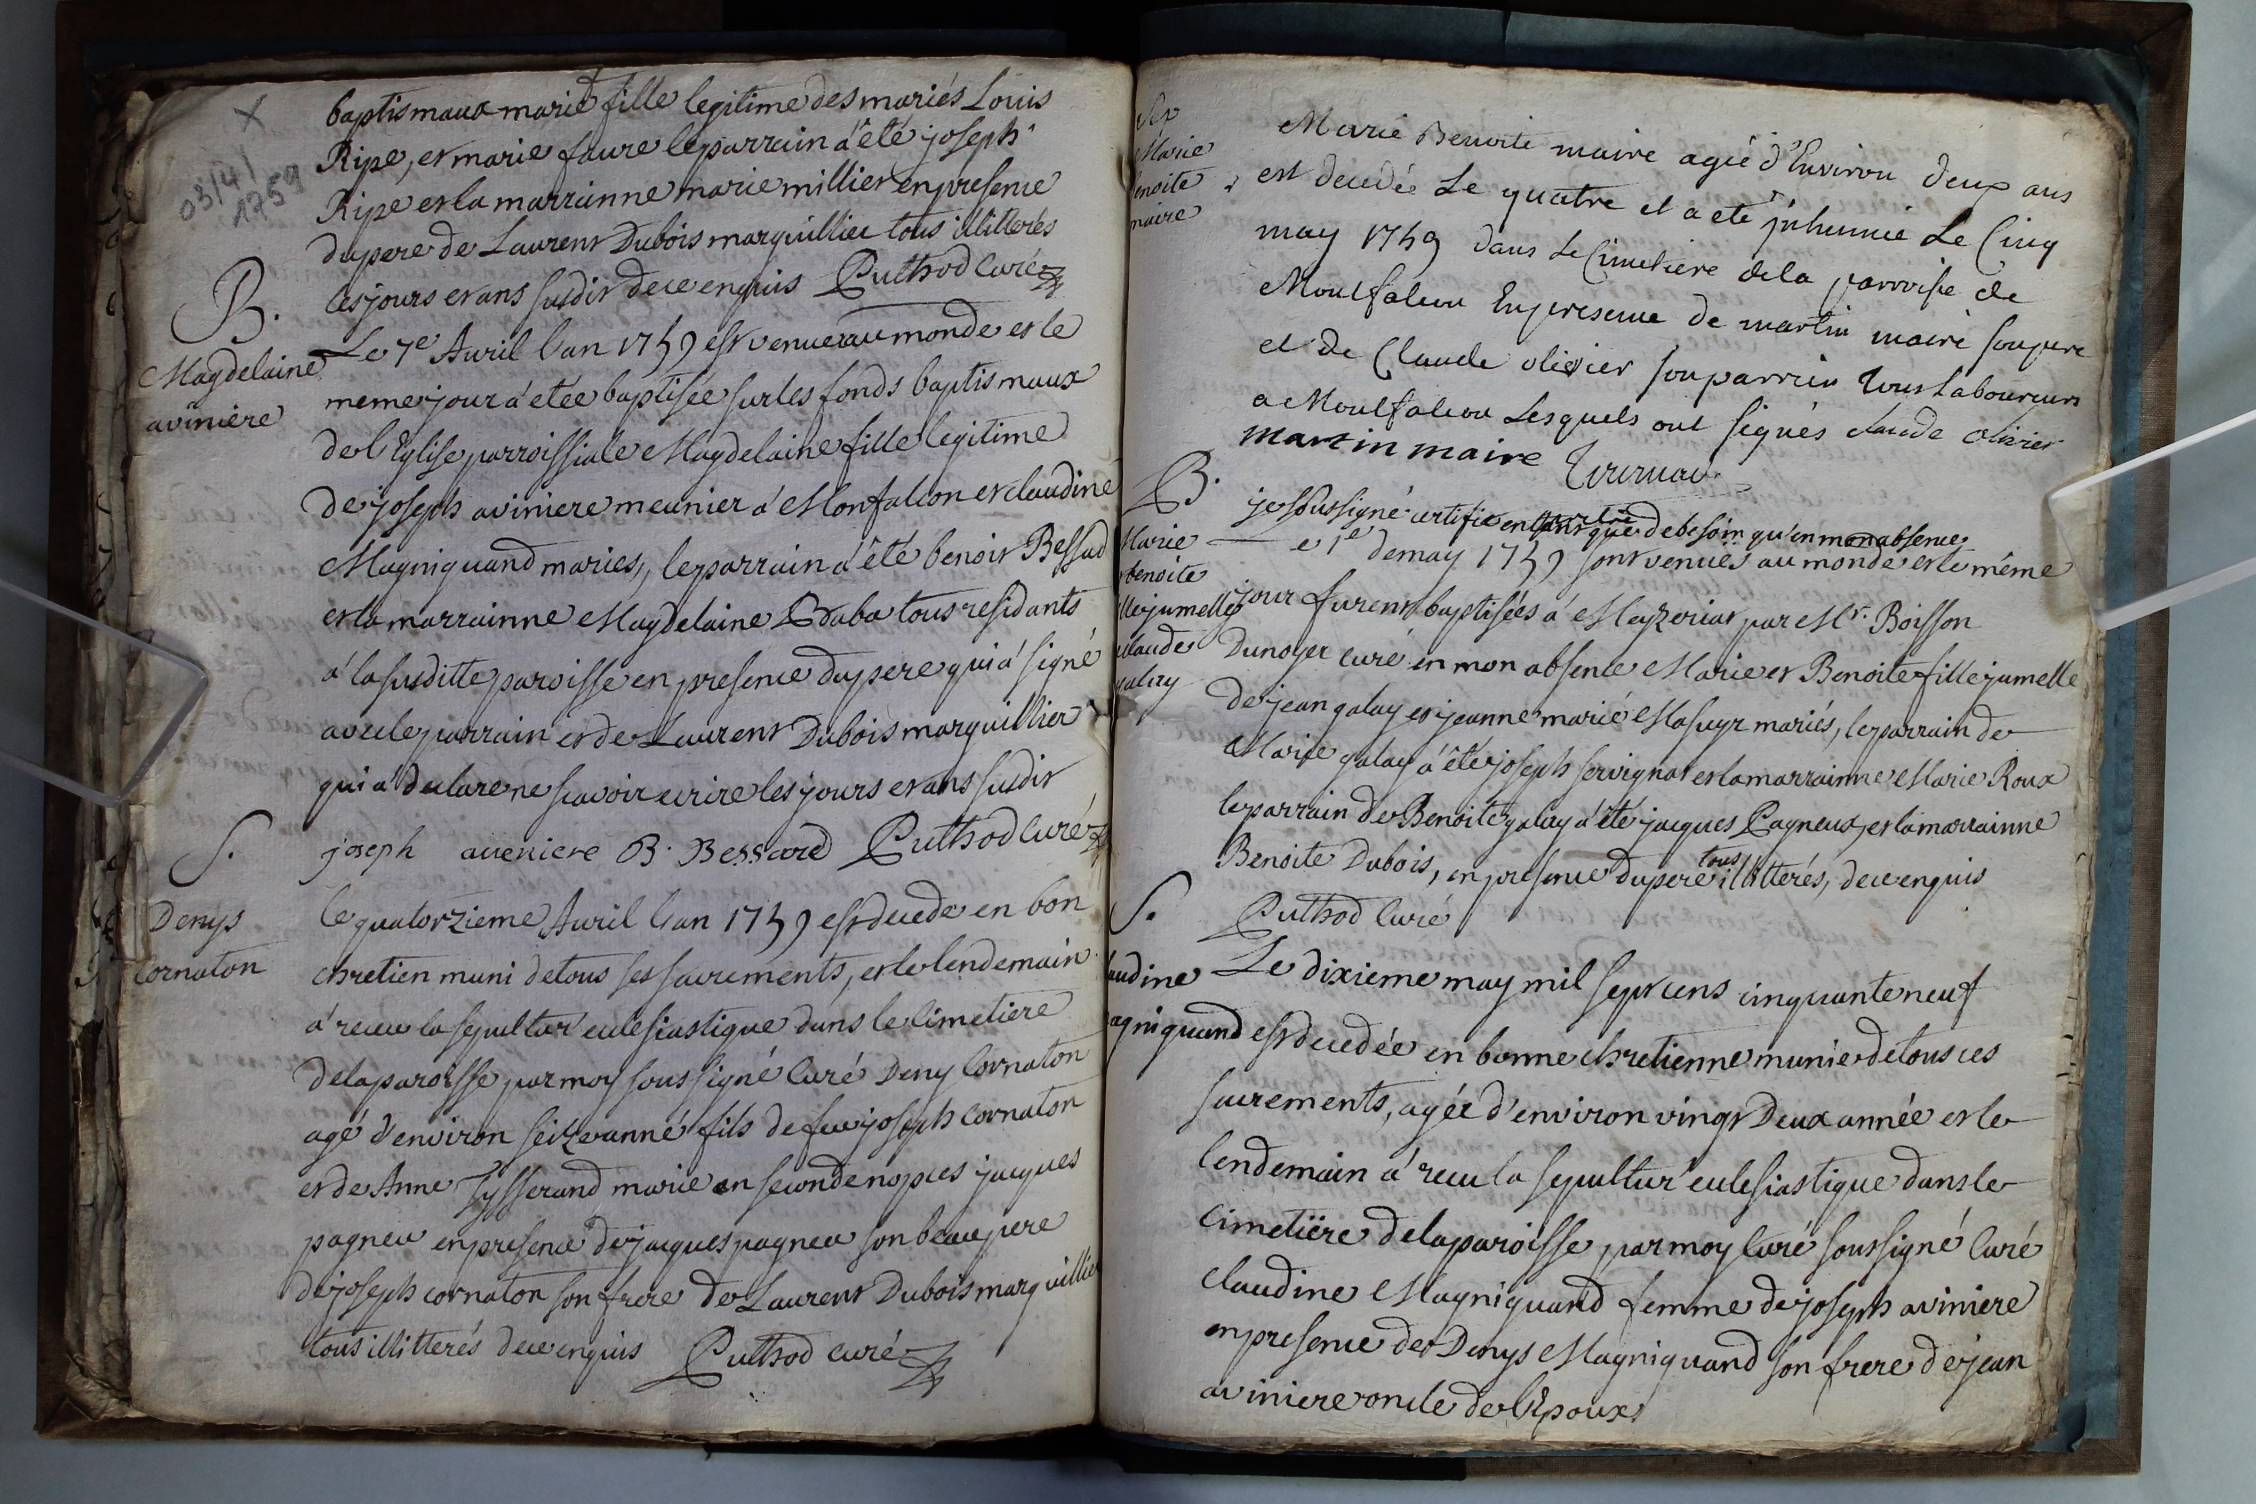 X
03/4/
1759
baptismaux marie fille legitime des mariés Louis
Ripe, et marie faure le parrain a été joseph
Ripe et la marrainne marie millier en presence
du pere de Laurent Dubois marguillier tous illitterés
les jours et ans susdit de ce enquis Puthod Curé
B.
Magdelaine
aviniere
Le 7e Avril l'an 1759 est venue au monde et le
meme jour a etée baptisée sur les fonds baptismaux
de l'Eglise parroissiale Magdelaine fille legitime
de joseph aviniere meunier a Monfalcon et claudine
Magniquand maries, le parrain a été benoit Bessad
et la marrainne Magdelaine Baba tous residants
a la susditte paroisse en presence du pere qui a signé
avec le parrain et de Laurent Dubois marguillier
qui a declare ne scavoir ecrire les jours et ans susdit
joseph aveniere B. Bessard Puthod Curé
S.
Denys
Cornaton
le quatorzieme Avril l'an 1759 est decede en bon
chretien muni de tous ses sacrements, et le lendemain
a recu la sepultur eclesiastique dans le cimetiere
de la paroisse par moy sous signé Curé Deny Cornaton
agé d'environ seize anné fils de feu joseph cornaton
et de Anne Tysserand marie en seconde nopces jacques
pagneu en presence de jacques pagneu son beau pere
de joseph cornaton son frere de Laurent Dubois marguillier
tous illitterés de ce enquis Puthod curé
Marie
enoite
maire
Marie Benoite maire agée d'Environ deux ans
est decedée Le quatre et a eté inhumée Le Cinq
may 1759 dans Le Cimetiere de la parroisse de
Montfalcon En presence de martin maire son pere
et de Claude olivier son parrein tous Laboureurs
a Montfalcon Lesquels ont signés claude olivier
martin maire
B.
Marie
benoite
lle jumelle
claude
galay
je soussigné certifie en tant que de besoin qu'en mon absence
le 1e de may 1759 sont venues au monde et le même
jour furent baptisées a Meyzeriat par Mr. Boisson
Dunoyer curé en mon absence Marie et Benoite fille jumelle
de jean galay et jeanne marie Masuyr mariés, le parrain de
Marie galay a été joseph servignat et la marrainne Marie Roux
le parrain de Benoite galay a été jacques Pagneux, et la marrainne
Benoite Dubois, en presence du pere tous illitterés, de ce enquis
Puthod Curé
S.
audine
agniquand
Le dixieme may mil sept cens cinquante neuf
est decedée en bonne chretienne munie de tous ces
sacrements, agée d'environ vingt Deux année et le
lendemain a recu la sepultur eclesiastique dans le
cimetiëre de la paroisse par moy Curé soussigné Curé
Claudine Magniquand femme de joseph aviniere
en presence de Denys Magniquand son frere de jean
aviniere oncle de l'Epoux